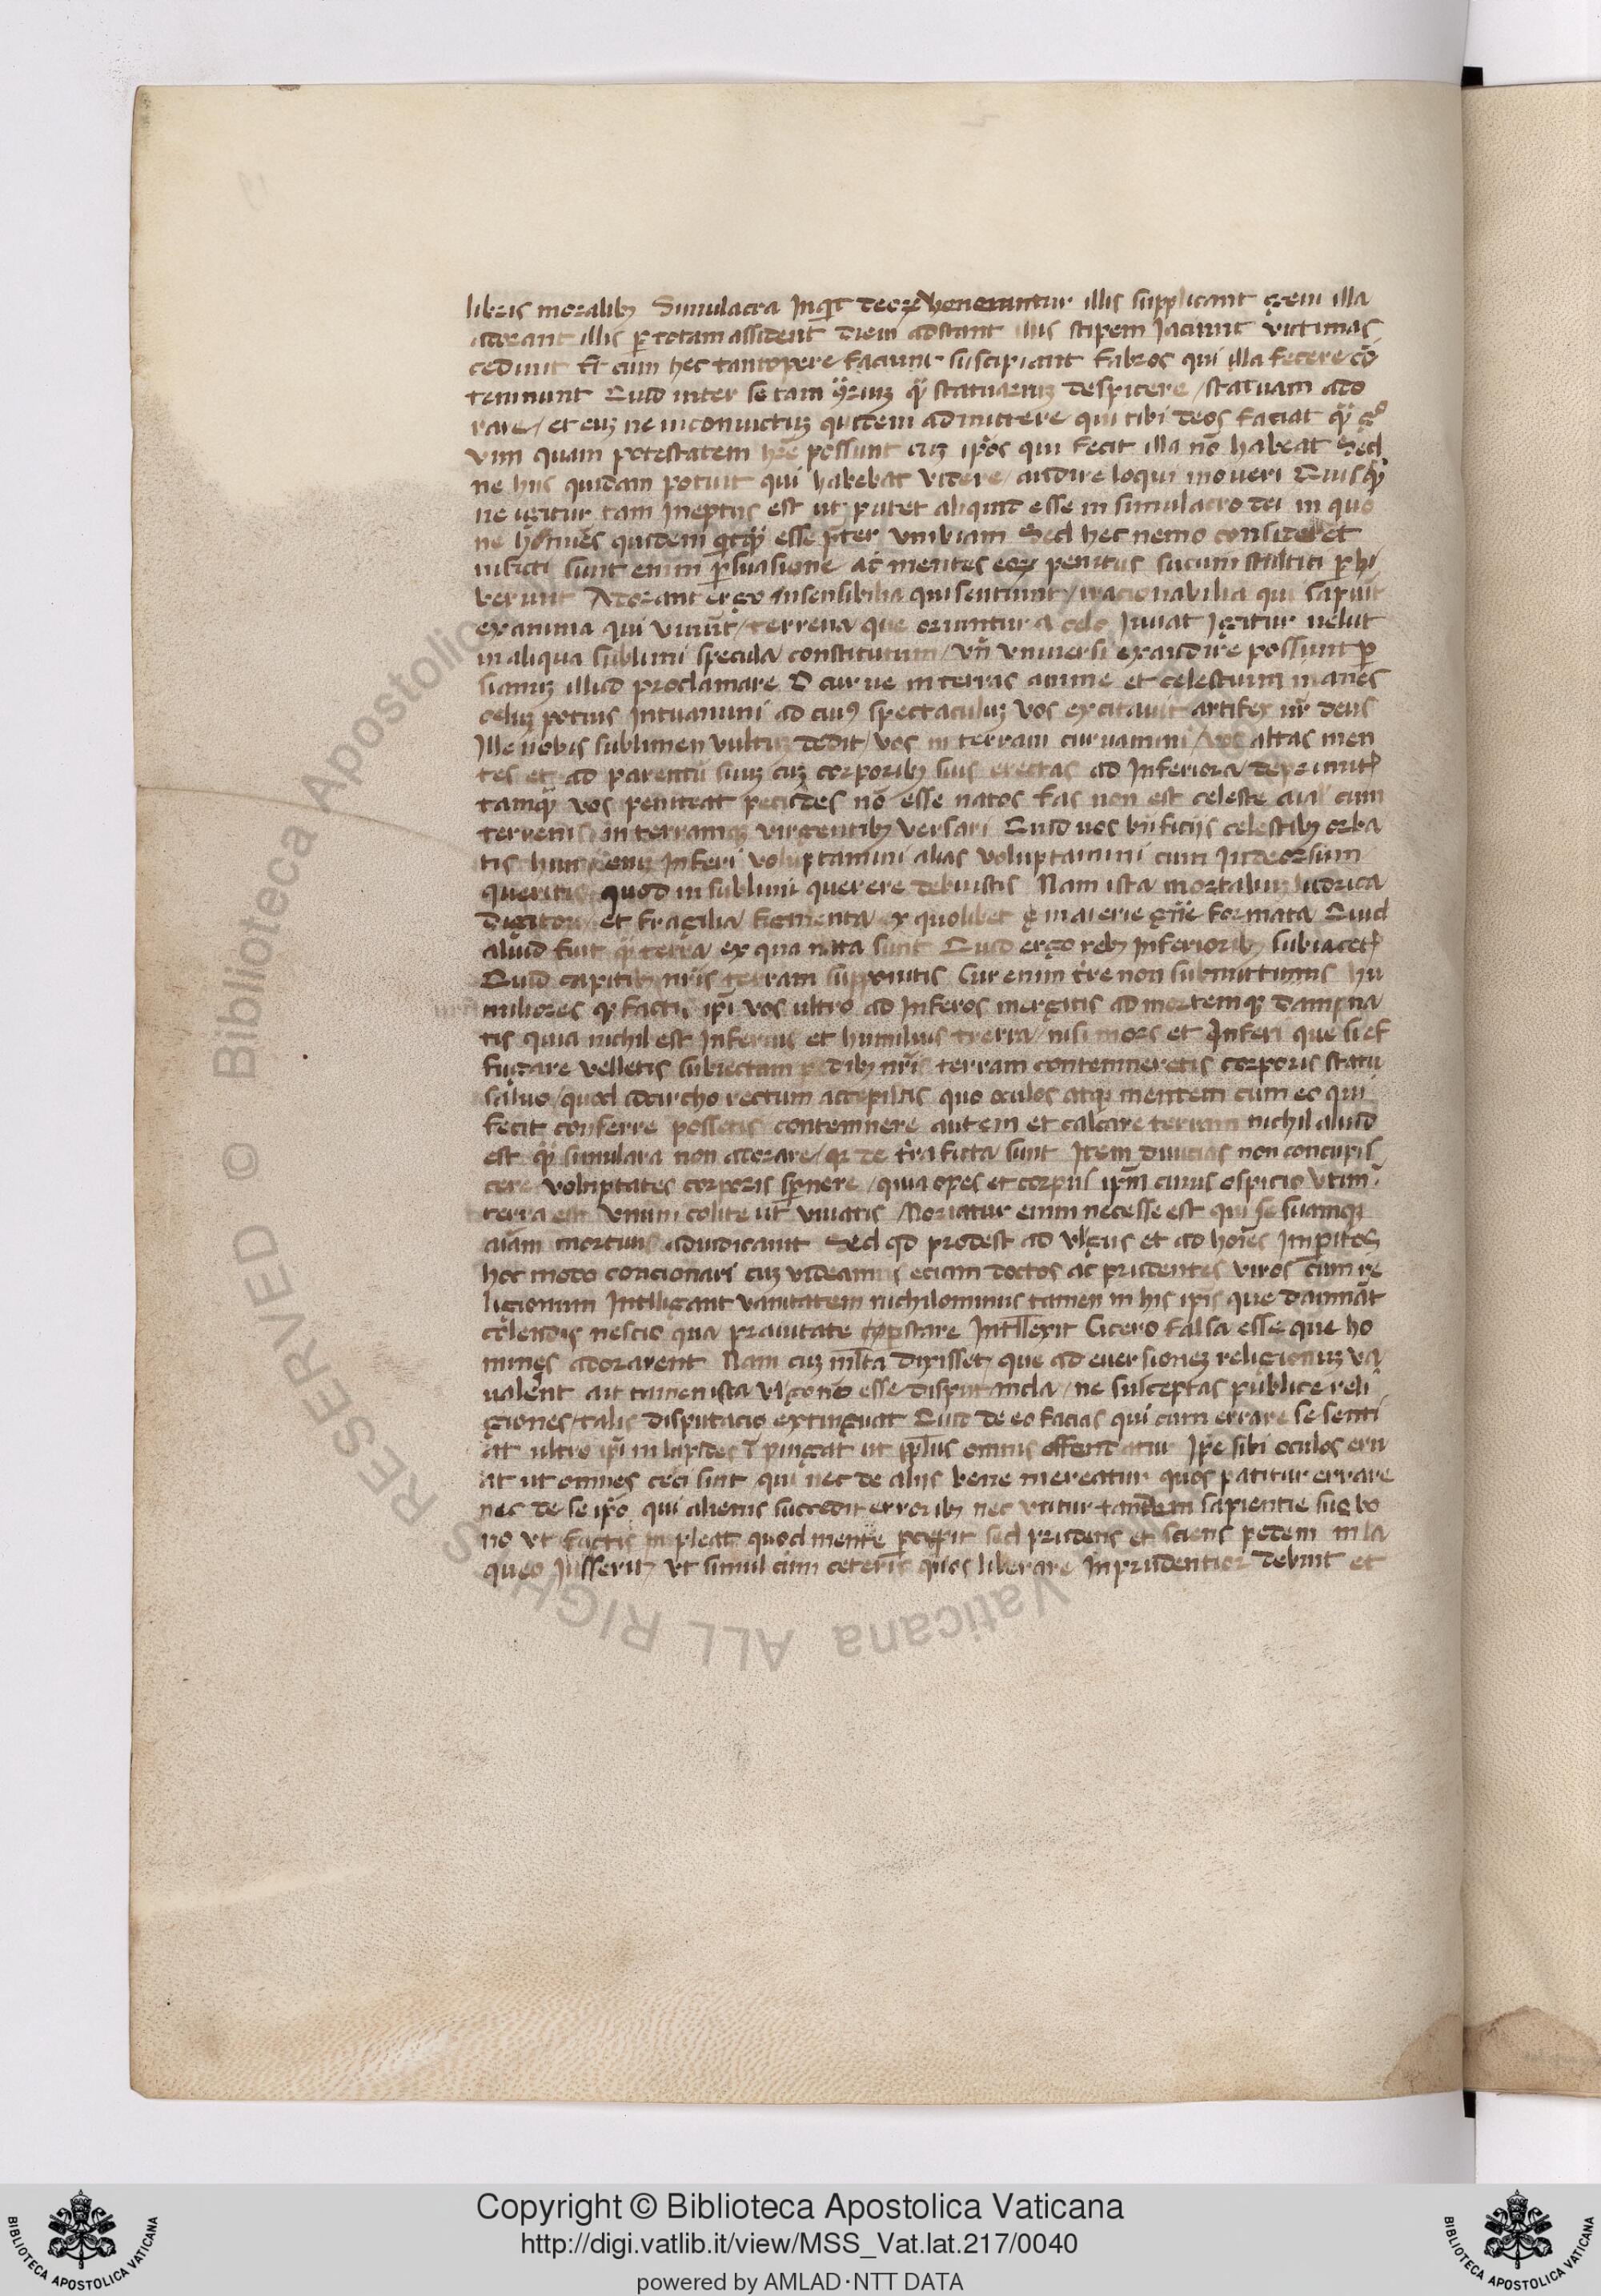 libris moralibꝫ Simulacra Inqͥt deoꝝ venerantur illis supplicant genu illa
adorant illis ꝑ totam assident diem adstant illis stipem Jaciunt victimas
cedunt Et cum hec tantopere faciunt suscipiant fabros qui illa fecere cō
temnunt Quid inter se tam ꝯ̈riuꝫ qͣꝫ statuariuꝫ despicere / statuam ado
rare / et euꝫ ne in conuictuꝫ quidem admittere qui tibi deos faciat
vim quam potestatem hr̄e possunt cuꝫ ip̄os qui fecit illa nō habeat Sed
ne hiis quidam potuit qui habebat videre / audire loqui moueri Quisqͣꝫ
ne igitur tam Ineptus est ut putet aliquid esse in simulacro dei in quo
ne homīes quidem esse p̄ter vmbram Sed hec nemo considerat
infecti sunt enim ꝑsuasione ac mentes eoꝝ penitus sucum stultiti ꝑbi
berunt Adorant ergo Insensibilia qui sentiunt / irracionabilia qui sapiūt
exanima qui viuūt / terrena que oriuntur a celo Juuat Igitur uelut
in aliqua sublimi specula constitutum / vn̄ vniuersi exaudire possunt ꝑ
sianuꝫ illud proclamare O curue in terras anime et celestium inanes
celuꝫ potius Intuamini ad cuiꝰ spectaculuꝫ vos excitauit artifex nr̄ deus
Ille uobis sublimen vultuꝫ dedit / vos in terram curuamini / vos altas men
tes et ad parentē suuꝫ cuꝫ corporibꝫ suis erectas ad Inferiora / deprimitꝭ
tamqͣꝫ vos peniteat pecudes nō esse natos fas non est celeste aīal cum
terrenis in terramqꝫ virgentibꝫ versari Quid uos bn̄ficijs celestibꝫ orba
tis Inferi voluptamini alias voluptamini cum Indeorsum
queritis quod in sublimi querere debuistis Nam ista mortaliuꝫ ludrica
digitor̄ / et fragilia figmenta ex quolibet materie gn̄e formata Quid
aliud fuit qͣꝫ terra ex qua nata sunt Quid ergo rebꝫ Inferioribꝫ subiacetꝭ
Quid capitibꝫ nr̄is terram supponitis Cur enim tr̄re non submittimus hu
miliores qꝫ factis ip̄i vos ultro ad Inferos mergitis ad mortemqꝫ dampna
tis quia nichil est Inferius et humilius terra / nisi mors et Inferi que si ef
fugare velletis subiectam pedibꝫ nr̄is terram contemneretis corporis statu
saluo / quod adcurcho rectum accepistis quo oculos atqꝫ mentem cum eo qui
fecit conferre possetis contemnere autem et calcare terram nichil aliud
est qͣꝫ simulara non adorare / qꝫ de tr̄ra ficta sunt Item diuicias non concupis
cere voluptates corporis sp̄nere / quia opes et corpus ip̄m cuius ospicio vtimꝰ
terra est vnum colite ut viuatis Moriatur enim necesse est qui se suamqꝫ
aīam mortuis adiudicauit Sed qd prodest ad vlgus et ad hoīes Imꝑitos
hoc modo concionari cuꝫ videamus eciam doctos ac prudentes viros cum re
ligionum Intelligant vanitatem nichilominus tamen in his ip̄is que damnāt
colendis nescio qua prauitate Intellexit Cicero falsa esse que ho
mines adorarent Nam cuꝫ ml̄ta dixisset / que ad euersioneꝫ religionuꝫ va
ualent ait tamen ista vlgo nō esse disputanda / ne susceptas publice reli
giones / talis disputacio extinguat Quid de eo facias qui cum errare se senti
at ultro ip̄i in lapides ī pingat ut pp̄lus omnis offendatur Ip̄e sibi oculos eru
at ut omnes ceci sint qui nec de alijs bene mereatur quos patitur errare
nec de se ip̄o qui alienis succedit erroribꝫ nec vtitur tandem sapientie sue bo
no vt factis inpleat quod mente ꝑcepit sed prudens et sciens pedem in la
queo Jnsserit / vt simul cum ceteris quos liberare Inprudentior debuit et
Copyright © Biblioteca Apostolica Vaticana
http://digi.vatlib.it/view/MSS_Vat.lat.217/0040
powered by AMLAD·NTT DATA
BIBLIOTECA APOSTOLICA VATICANA
BIBLIOTECA APOSTOLICA VATICANA
© Biblioteca Apostolica Vaticana ALL RIGHTS RESERVED